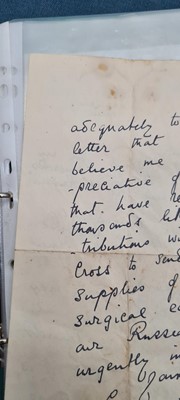 adequately to
letter that
believe me
-preciative of
that have re
thousands let
-tributions wi
Cross to send
Supplies of
Surgical e
our Russia
urgently in